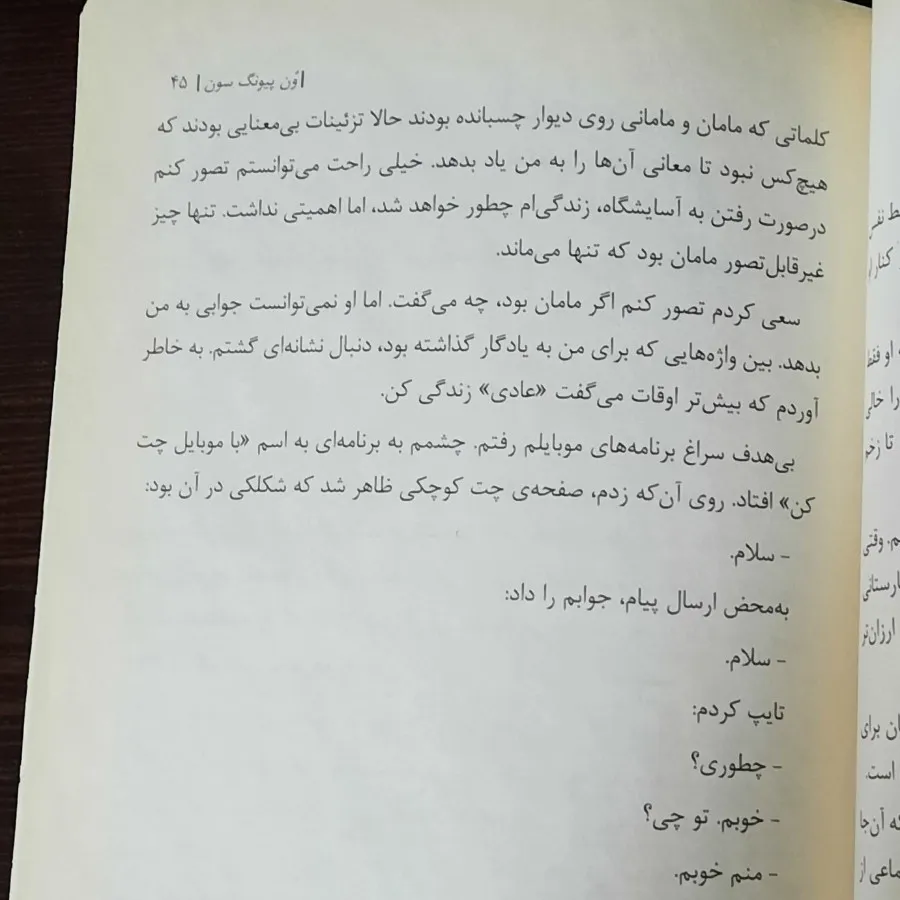 اوُن پیونگ سون | ۴۵
کلماتی که مامان و مامانی روی دیوار چسبانده بودند حالا تزئینات بی‌معنایی بودند که
هیچ‌کس نبود تا معانی آن‌ها را به من یاد بدهد. خیلی راحت می‌توانستم تصور کنم
درصورت رفتن به آسایشگاه، زندگی‌ام چطور خواهد شد، اما اهمیتی نداشت. تنها چیز
غیرقابل‌تصور مامان بود که تنها می‌ماند.
سعی کردم تصور کنم اگر مامان بود، چه می‌گفت. اما او نمی‌توانست جوابی به من
بدهد. بین واژه‌هایی که برای من به یادگار گذاشته بود، دنبال نشانه‌ای گشتم. به خاطر
آوردم که بیش‌تر اوقات می‌گفت «عادی» زندگی کن.
بی‌هدف سراغ برنامه‌های موبایلم رفتم. چشمم به برنامه‌ای به اسم «با موبایل چت
کن» افتاد. روی آن‌که زدم، صفحه‌ی چت کوچکی ظاهر شد که شکلکی در آن بود:
- سلام.
به‌محض ارسال پیام، جوابم را داد:
- سلام.
تایپ کردم:
- چطوری؟
- خوبم. تو چی؟
- منم خوبم.
کنار
او فقط
را خالی
تا زخم
م. وقتی
ارزان‌تر
ان برای
است.
که آن‌جا
ماعی از